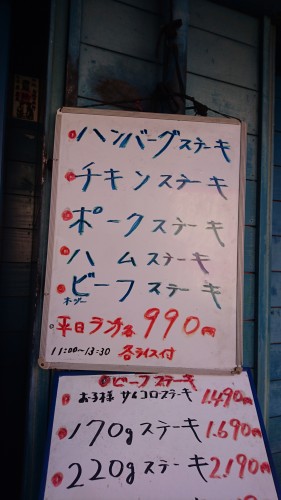 ハンバーグステーキ
チキンステーキ
ポークステーキ
ハムステーキ
ビーフステーキ
平日ランチ各990円
11:00~13:30 各ライス付
ビーフステーキ
お子様サイコロステーキ 1.490円
170gステーキ 1.690円
220gステーキ 2.190円